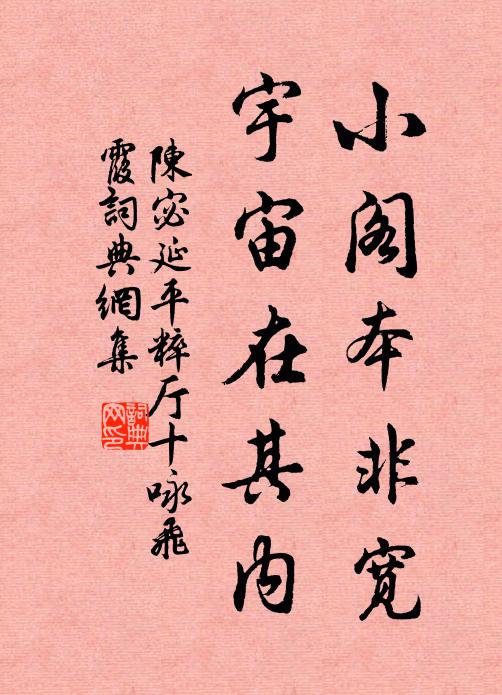 小阁本非宽
宇宙在其内
陳宓延平粹厅十咏飛
霞詞典網集
詞典网印